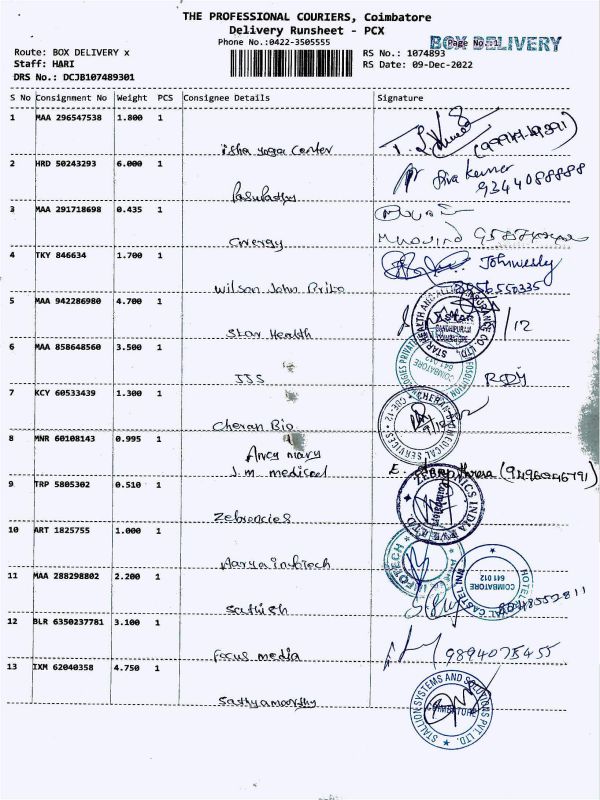 THE PROFESSIONAL COURIERS, Coimbatore
Delivery Runsheet - PCX
Phone No.:0422-3505555
BOX DELIVERY
Page No.:1
Route: BOX DELIVERY x
RS No.: 1074893
Staff: HARI
RS Date: 09-Dec-2022
DRS No.: DCJB107489301
S No Consignment No Weight PCS Consignee Details Signature
1 MAA 296547538 1.800 1
isha yoga Center
2 HRD 50243293 6.000 1
Siva kumar
Pasupathy
9344088888
3 MAA 291718698 0.435 1
Cnergy
4 TKY 846634 1.700 1
Johnwesly
Wilson John Brito
8056550335
5 MAA 942286980 4.700 1
STAR HEALTH AND ALLIED INSURANCE CO. LTD.
GANDHIPURAM
COIMBATORE
/12
Star Health
6 MAA 858648560 3.500 1
COIMBATORE
641 012
JSS
7 KCY 60533439 1.300 1
Cheran Bio
8 MNR 60108143 0.995 1
Ancy mary
J.m medical
9 TRP 5805302 0.510 1
ZEBRONICS INDIA PVT LTD
Coimbatore
Zebroncies
10 ART 1825755 1.000 1
INFOTECH
Aarya infotech
11 MAA 288298802 2.200 1
HOTEL
COIMBATORE
641 012
Sathish
12 BLR 6350237781 3.100 1
Focus media
9894075455
13 IXM 62040358 4.750 1
Sathyamoorthy
STALLION SYSTEMS AND SOLUTIONS PVT. LTD.
COIMBATORE